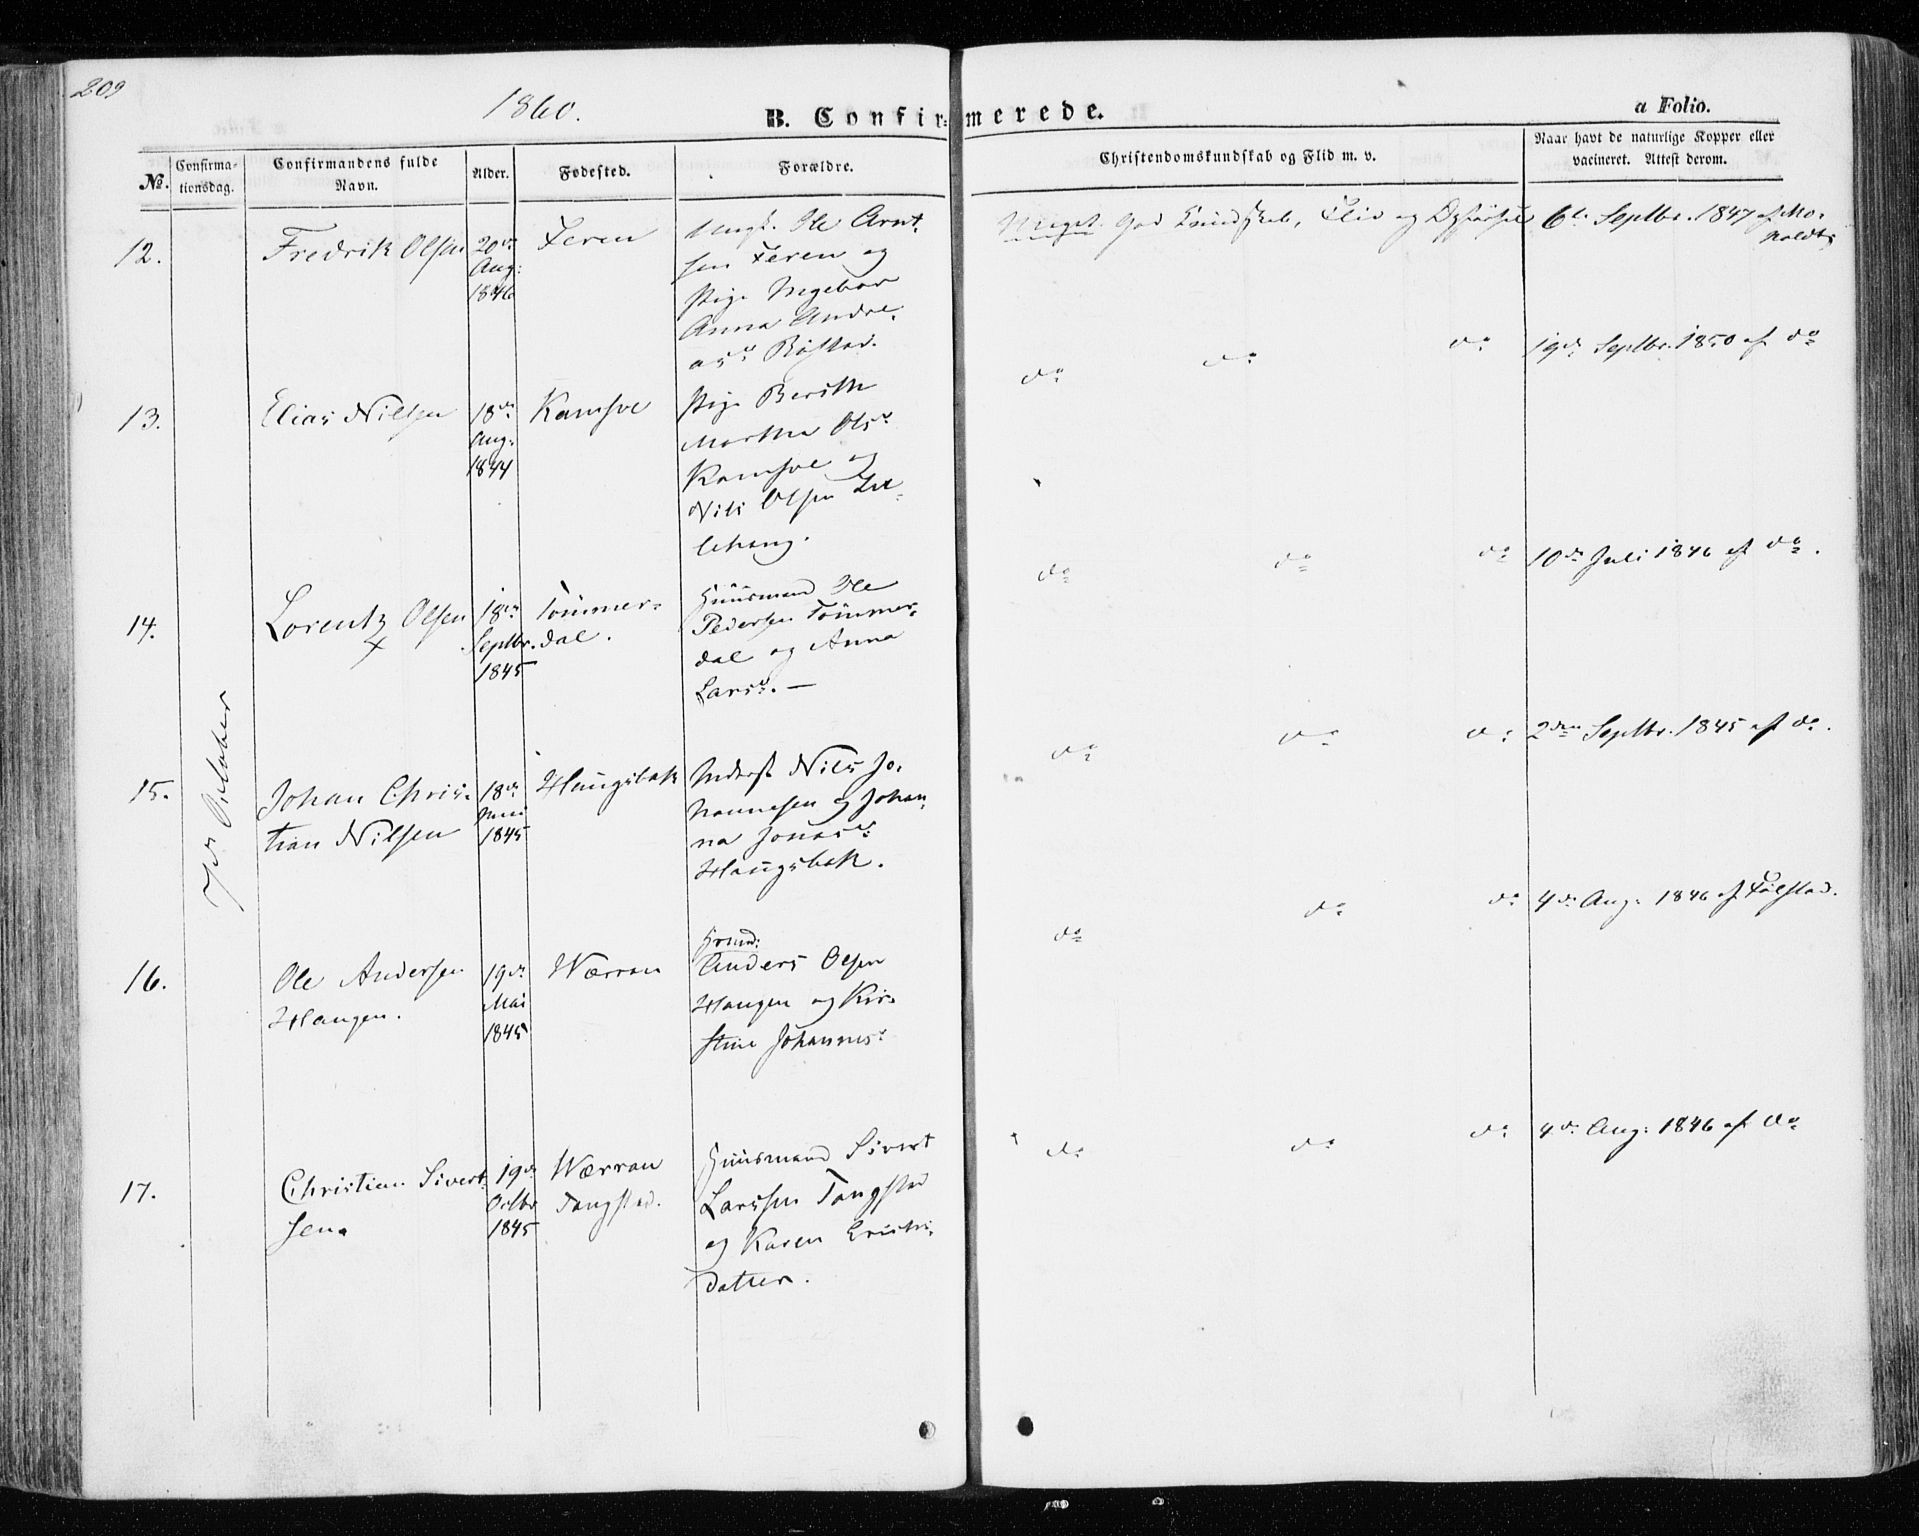 209
1860.
B. Confirmerede.
a Folio.
No.
Confirma-
tionsdag.
Confirmandens fulde
Navn.
Alder.
Fødested.
Forældre.
Christendomskundskab og Flid m. v.
Naar havt de naturlige Kopper eller
vacineret. Attest derom.
7de October
12.
Fredrik Olsen
20de
Aug:
1846
Feren
Ungk. Ole Arnt-
sen Feren og
Pige Ingebor
Anna Andre-
asd. Røstad.
Meget god Kundskab, Flid og Opførsel
6te Septbr. 1847 af Mo-
holdt
13.
Elias Nilsen
18de
Aug:
1844
Kamsve
Pige Berith
Martha Olsd.
Kamsve og
Nils Olsen
do do do
19de Septbr. 1850 af do
14.
Lorentz Olsen
x
18de
Septbr.
1845
Tømmer-
dal.
Huusmand Ole
Pedersen Tømmer-
dal og Anna
Larsd. —
do do do
10de Juli 1846 af do.
15.
Johan Chris-
tian Nilsen
18de
1845
Haugsbak
Inderst Nils Jo-
hannesen og Johan-
na Jonasd:
Haugsbak.
do do do
2den Septbr. 1845 af do.
16.
Ole Andersen
Haugen.
19de
Mai
1845
Werran
Hrmd:
Anders Olsen
Haugen og Kir-
stine Johannesd.
do do do
4de Aug: 1846 af Følstad.
17.
Christian Sivert-
sen.
19de
Octbr
1845
Werran
Tangstad.
Huusmand Sivert
Larssen Tangstad
og Karen Erichs-
datter.
do do do
4de Aug: 1846 af do